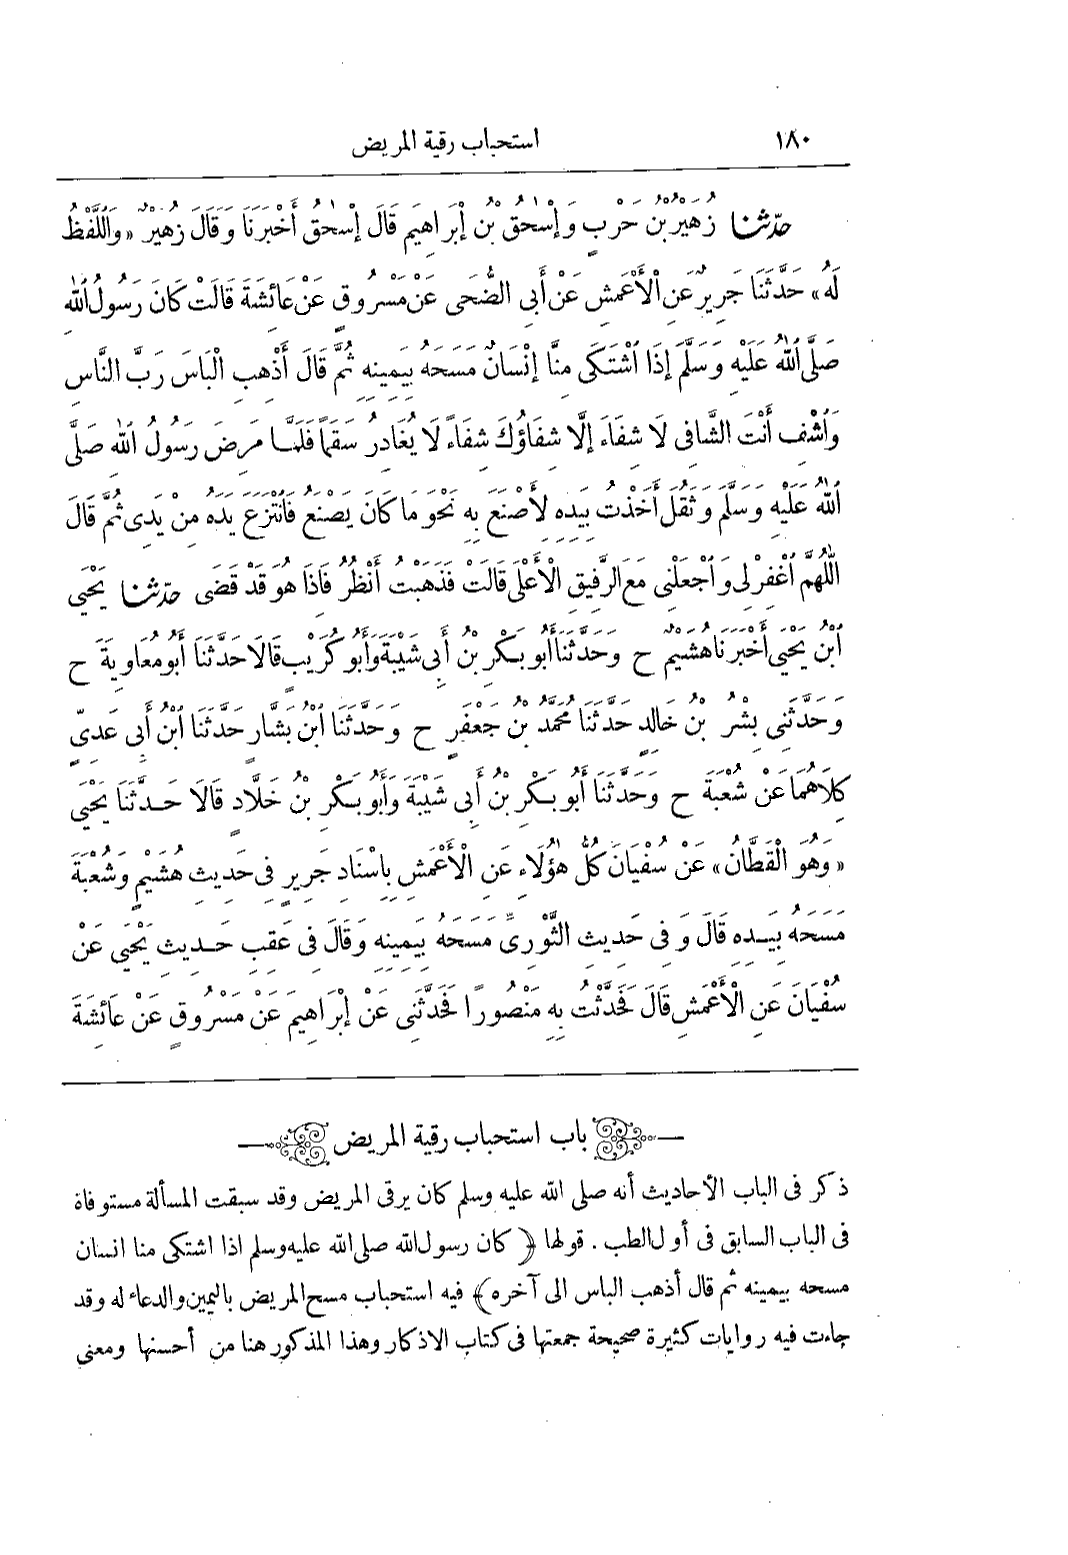 ١٨٠ استحباب رقية المريض
حدّثنا زُهَيْرُ بْنُ حَرْبٍ وَإِسْحٰقُ بْنُ إِبْرَاهِيمَ قَالَ إِسْحٰقُ أَخْبَرَنَا وَقَالَ زُهَيْرٌ «وَاللَّفْظُ
لَهُ» حَدَّثَنَا جَرِيرٌ عَنِ الْأَعْمَشِ عَنْ أَبِى الضُّحَى عَنْ مَسْرُوقٍ عَنْ عَائِشَةَ قَالَتْ كَانَ رَسُولُ اللهِ
صَلَّى اللهُ عَلَيْهِ وَسَلَّمَ إِذَا اشْتَكَى مِنَّا إِنْسَانٌ مَسَحَهُ بِيَمِينِهِ ثُمَّ قَالَ أَذْهِبِ الْبَاسَ رَبَّ النَّاسِ
وَاشْفِ أَنْتَ الشَّافِى لَا شِفَاءَ إِلَّا شِفَاؤُكَ شِفَاءً لَا يُغَادِرُ سَقَمًا فَلَمَّا مَرِضَ رَسُولُ اللهِ صَلَّى
اللهُ عَلَيْهِ وَسَلَّمَ وَثَقُلَ أَخَذْتُ بِيَدِهِ لِأَصْنَعَ بِهِ نَحْوَ مَا كَانَ يَصْنَعُ فَانْتَزَعَ يَدَهُ مِنْ يَدِى ثُمَّ قَالَ
اللّٰهُمَّ اغْفِرْ لِى وَاجْعَلْنِى مَعَ الرَّفِيقِ الْأَعْلَى قَالَتْ فَذَهَبْتُ أَنْظُرُ فَاذَا هُوَ قَدْ قَضَى حدّثنا يَحْيَى
ابْنُ يَحْيَى أَخْبَرَنَا هُشَيْمٌ ح وَحَدَّثَنَا أَبُو بَكْرِ بْنُ أَبِى شَيْبَةَ وَأَبُو كُرَيْبٍ قَالَا حَدَّثَنَا أَبُو مُعَاوِيَةَ ح
وَحَدَّثَنِى بِشْرُ بْنُ خَالِدٍ حَدَّثَنَا مُحَمَّدُ بْنُ جَعْفَرٍ ح وَحَدَّثَنَا ابْنُ بَشَّارٍ حَدَّثَنَا ابْنُ أَبِى عَدِىٍّ
كِلَاهُمَا عَنْ شُعْبَةَ ح وَحَدَّثَنَا أَبُو بَكْرِ بْنُ أَبِى شَيْبَةَ وَأَبُو بَكْرِ بْنُ خَلَّادٍ قَالَا حَدَّثَنَا يَحْيَى
«وَهُوَ الْقَطَّانُ» عَنْ سُفْيَانَ كُلُّ هٰؤُلَاءِ عَنِ الْأَعْمَشِ بِاسْنَادِ جَرِيرٍ فِى حَدِيثِ هُشَيْمٍ وَشُعْبَةَ
مَسَحَهُ بِيَدِهِ قَالَ وَفِى حَدِيثِ الثَّوْرِىِّ مَسَحَهُ بِيَمِينِهِ وَقَالَ فِى عَقِبِ حَدِيثِ يَحْيَى عَنْ
سُفْيَانَ عَنِ الْأَعْمَشِ قَالَ فَحَدَّثْتُ بِهِ مَنْصُورًا فَحَدَّثَنِى عَنْ إِبْرَاهِيمَ عَنْ مَسْرُوقٍ عَنْ عَائِشَةَ
باب استحباب رقية المريض
ذكر فى الباب الأحاديث أنه صلى الله عليه وسلم كان يرقى المريض وقد سبقت المسألة مستوفاة
فى الباب السابق فى أول الطب . قولها ﴿كان رسول الله صلى الله عليه وسلم اذا اشتكى منا انسان
مسحه بيمينه ثم قال أذهب الباس الى آخره﴾ فيه استحباب مسح المريض باليمين والدعاء له وقد
جاءت فيه روايات كثيرة صحيحة جمعتها فى كتاب الاذكار وهذا المذكور هنا من أحسنها ومعنى